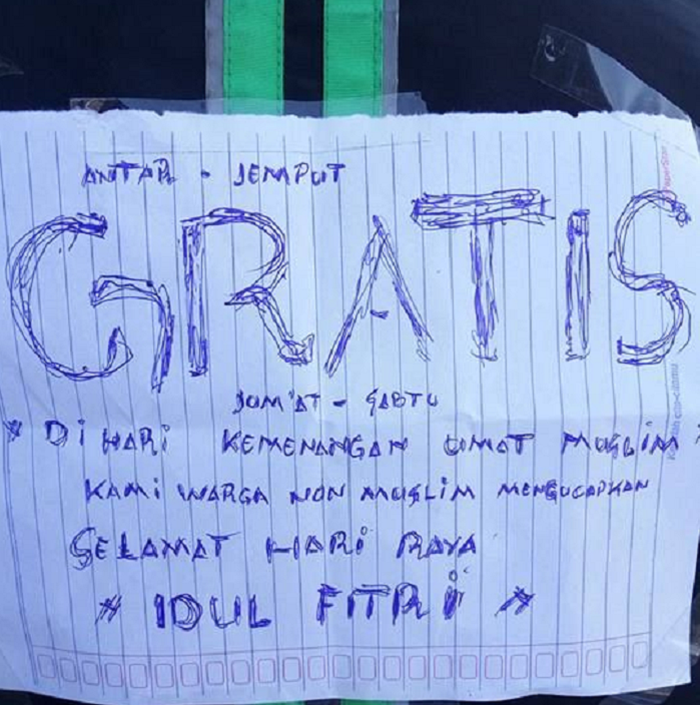 ANTAR - JEMPUT
GRATIS
JUM'AT - SABTU
* DI HARI KEMENANGAN UMAT MUSLIM
KAMI WARGA NON MUSLIM MENGUCAPKAN
SELAMAT HARI RAYA
* IDUL FITRI *
PaperStar